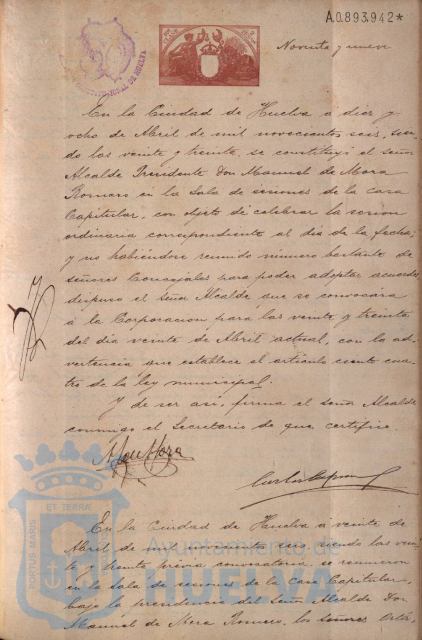 A.0.893.942*
Noventa y nueve
En la Ciudad de Huelva a diez y
ocho de Abril de mil novecientos seis, sien-
do las veinte y treinta, se constituyó el señor
Alcalde Presidente Don Manuel de Mora
Romero en la Sala de sesiones de la casa
Capitular, con objeto de celebrar la sesion
ordinaria correspondiente al dia de la fecha;
y no habiéndose reunido número bastante de
señores Concejales para poder adoptar acuerdos
dispuso el Señor Alcalde que se convocára
á la Corporacion para las veinte y treinta
del dia veinte de Abril actual, con la ad-
vertencia que establece el artículo ciento cua-
tro de la ley municipal.
Y de ser así, firma el señor Alcalde
conmigo el Secretario de que certifico.
En la Ciudad de Huelva a veinte de
Abril de mil novecientos seis, siendo las vein-
te y treinta previa convocatoria, se reunieron
en la Sala de sesiones de la Casa Capitular,
bajo la presidencia del Señor Alcalde Don
Manuel de Mora Romero, los señores
PORTUS MARIS
ET TERRAE
Ayuntamiento de
HUELVA